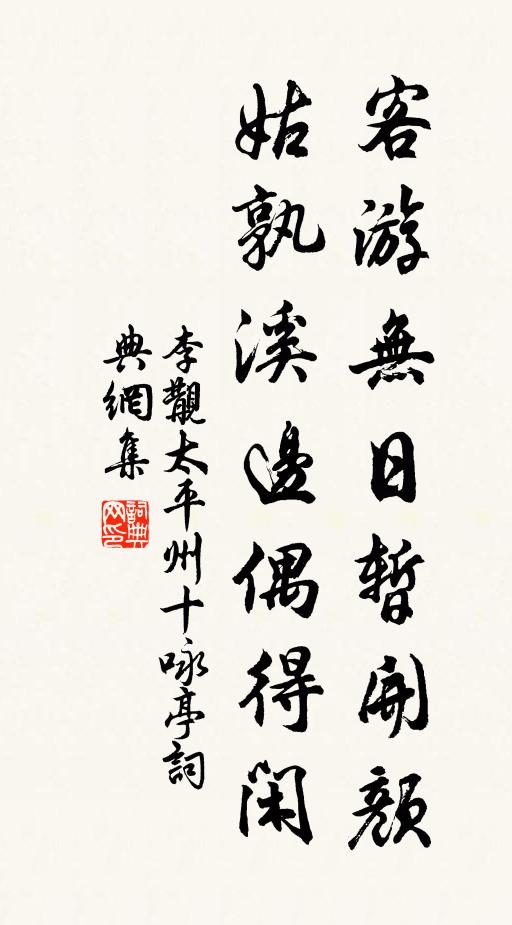 客游無日暫開顏
姑孰溪邊偶得閑
李覯太平州十咏亭詞
典網集
詞典
网印